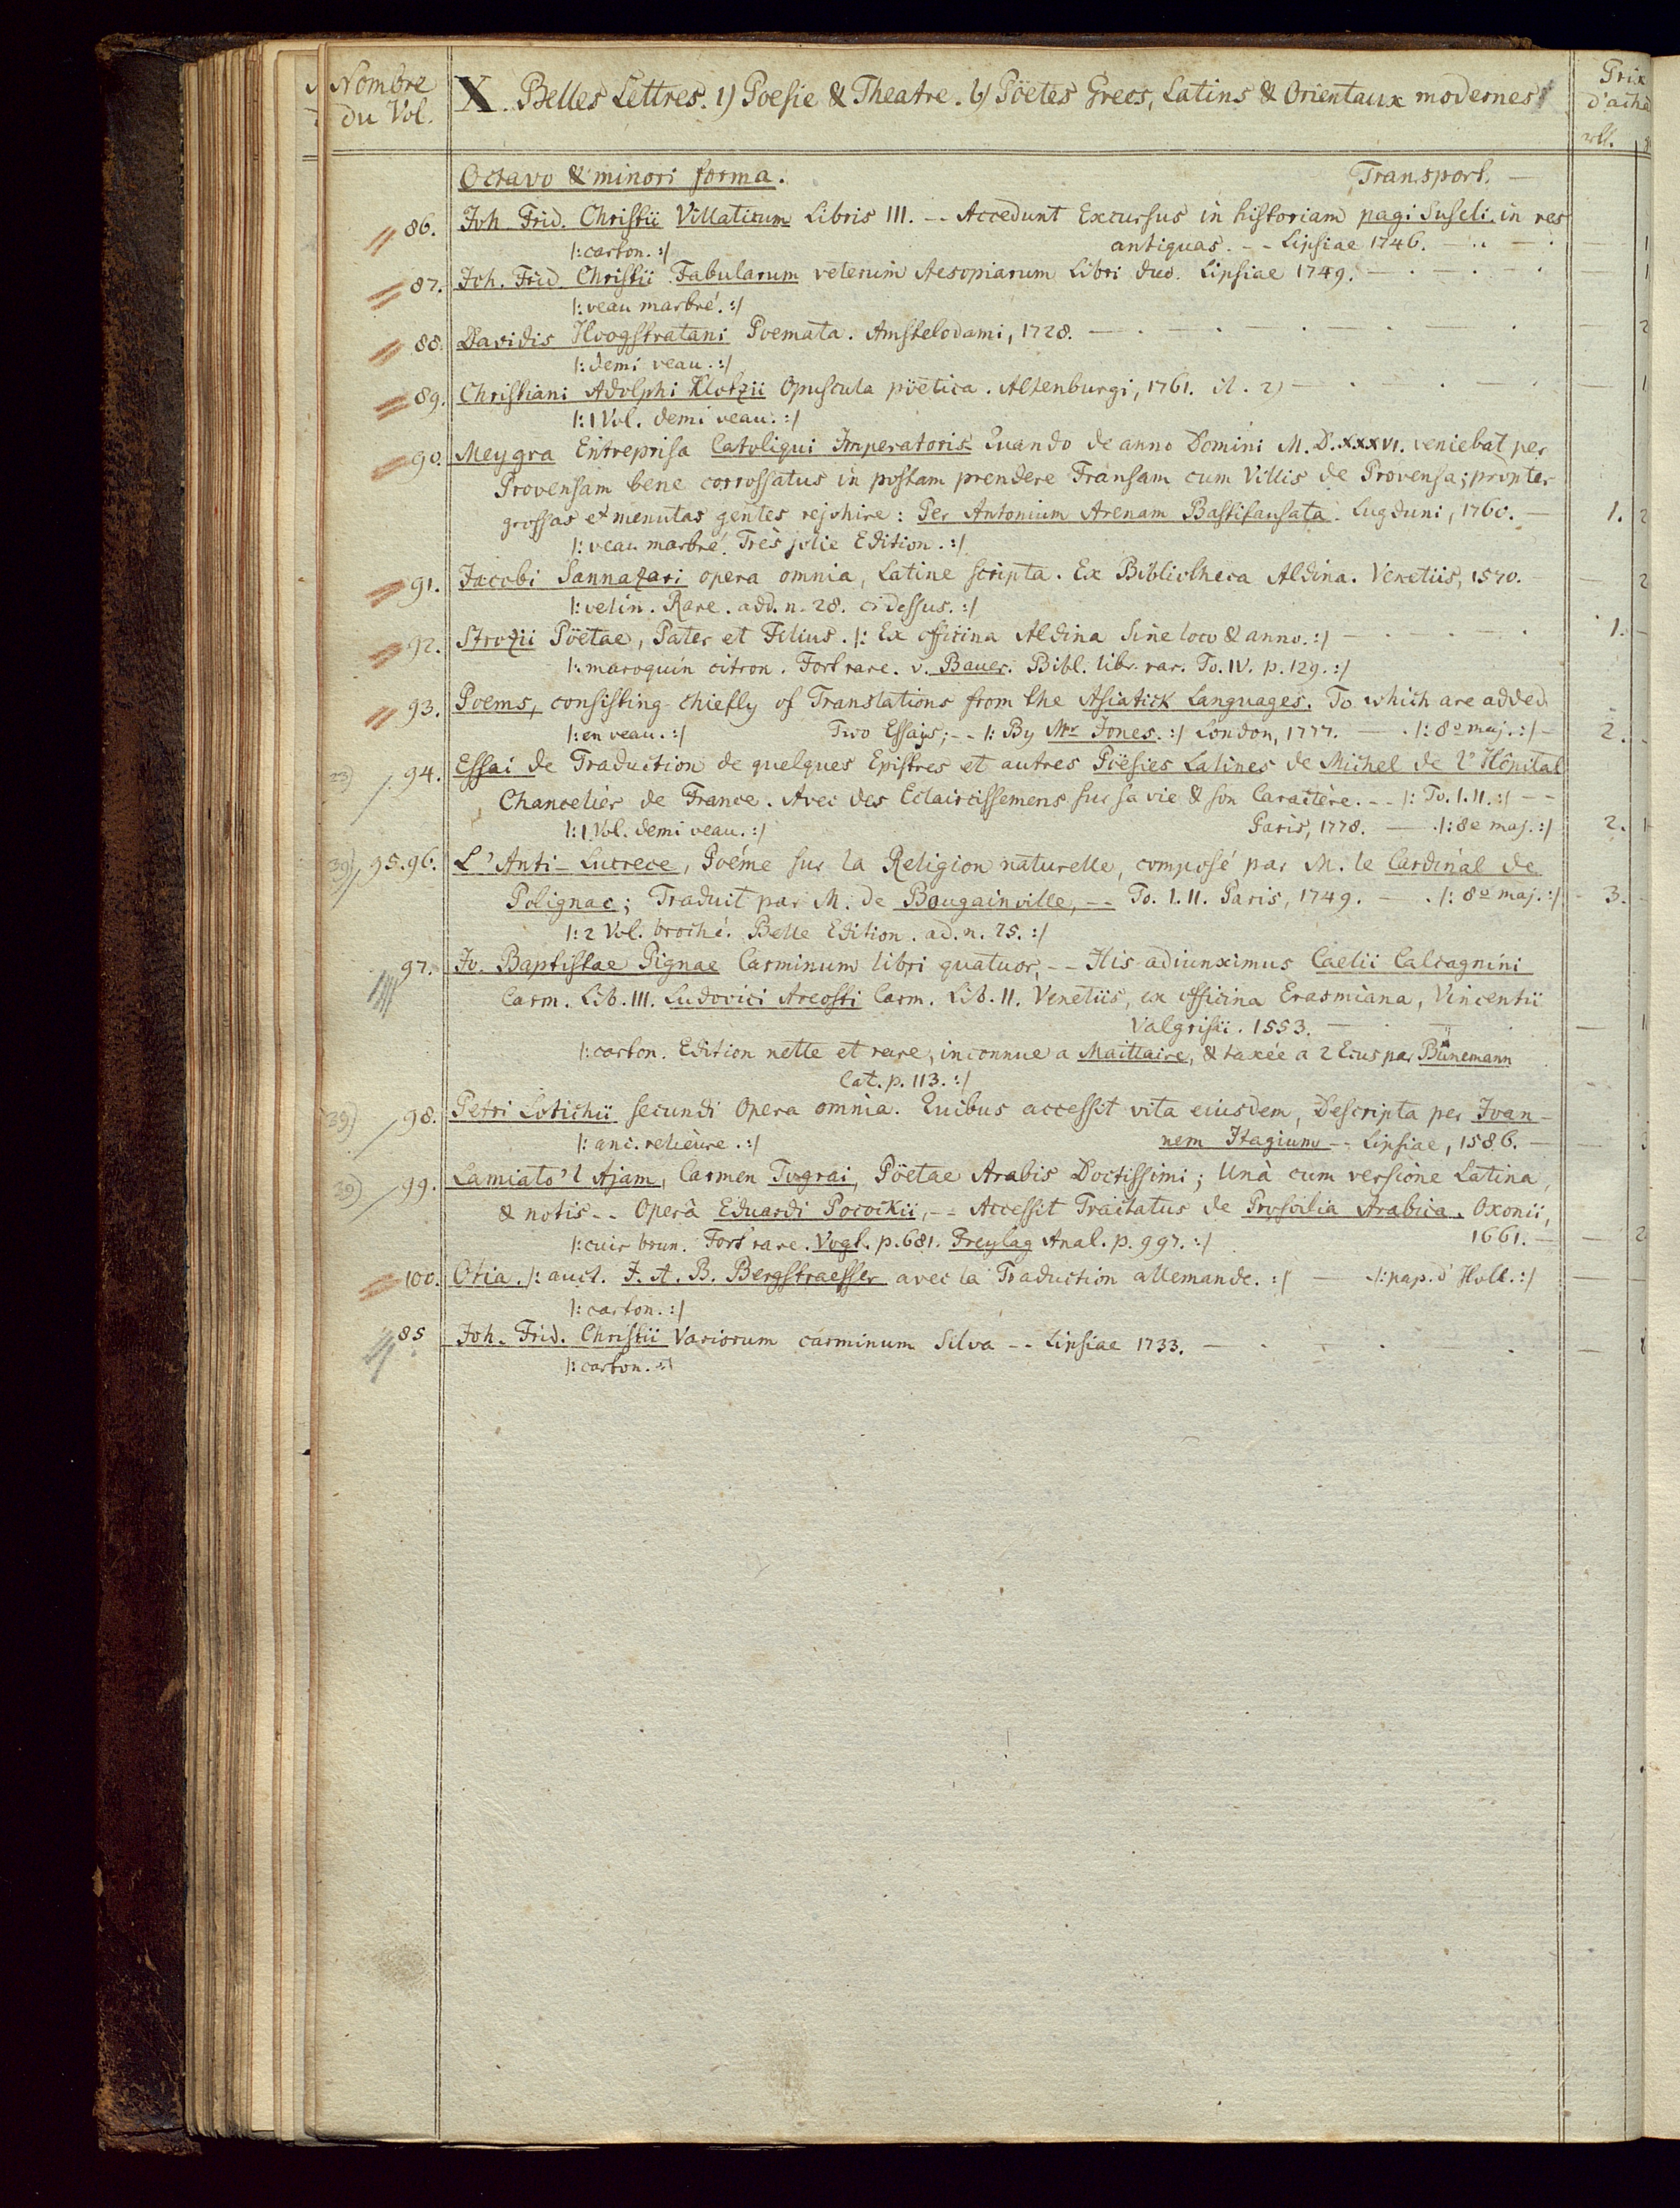 Nombre du Vol.
X. Belles Lettres. 1) Poesie & Theatre. b) Pöetes Grecs, Latins & Orientaux modernes
Prix
d'acha
rll.
Octavo & minori forma. Transport. —
86. Joh. Frid. Christii Villaticum Libris III. -- Accedunt Excursus in historiam pagi Suseli in res
/: carton. :/ antiquas. -- Lipsiae 1746. 1
87. Joh. Frid. Christii Fabularum veterum Aesopiarum Libri duo. Lipsiae 1749. 1
/: veau marbré. :/
88. Davidis Hoogstratani Poemata. Amstelodami, 1728. 2
/: demi veau. :/
89. Christiani Adolphi Klotzii Opuscula pöetica. Altenburgi, 1761. it. 2) — 1
/: 1 Vol. demi veau. :/
90. Meygra Entreprisa Catoliqui Imperatoris Quando de anno Domini M.D.XXXVI. veniebat per
Provensam bene corrossatus in postam prendere Fransam cum Villis de Provensa; propter
grossas et menutas gentes rejohire: Per Antonium Arenam Bastifausata. Lugduni, 1760. — 1. 2
/: veau marbré. Très jolie Edition. :/
91. Jacobi Sannazari opera omnia, Latine scripta. Ex Bibliotheca Aldina. Venetiis, 1570. — 2
/: velin. Rare. add. n. 28. ci dessus. :/
92. Strozii Pöetae, Pater et Filius. /: Ex officina Aldina sine loco & anno. :/ 1. -
/: maroquin citron. Fort rare. v. Bauer. Bibl. libr. rar. To. IV. p. 129. :/
93. Poems, consisting chiefly of Translations from the Asiatick Languages. To which are added
/: en veau. :/ Two Essays; -- /: By Mr Jones. :/ London, 1777. — . /: 8o maj. :/ - 2. -
23) / 94. Essai de Traduction de quelques Epistres et autres Pöesies Latines de Michel de l'Hôpital
Chancelier de France. Avec des Eclaircissemens sur sa vie & son Caractère. -- /: To. I. II. :/ --
/: 1 Vol. demi veau. :/ Paris, 1778. — . /: 8o maj. :/ 2. 1
39) / 95. 96. L'Anti-Lucrece, Poéme sur la Religion naturelle, composé par M. le Cardinal de
Polignac; Traduit par M. de Bougainville, -- To. I. II. Paris, 1749. — . /: 8o maj. :/ - 3. -
/: 2 Vol. broché. Belle Edition. ad. n. 25. :/
97. Jo. Baptistae Pignae Carminum libri quatuor, -- His adiunximus Caelii Calcagnini
Carm. Lib. III. Ludovici Areosti Carm. Lib. II. Venetiis, ex officina Erasmiana, Vincentii
Valgrisii. 1553. — 1
/: carton. Edition nette et rare, inconnue a Maittaire, & taxée a 2 Ecus par Bünemann
Cat. p. 113. :/
39) / 98. Petri Lotichii secundi Opera omnia. Quibus accessit vita eiusdem, Descripta per Ioan-
/: anc. relieure. :/ nem Hagium -- Lipsiae, 1586. — 3
39) / 99. Lamiato'l Ajam, Carmen Tograi, Pöetae Arabis Doctissimi; Unà cum versione Latina,
& notis -- Operâ Eduardi Pocockii, -- Accessit Tractatus de Prosodia Arabica. Oxonii,
/: cuir brun. Fort rare. Vogt. p. 681. Freytag Anal. p. 997. :/ 1661. — 2
100. Otia. /: auct. J. A. B. Bergstraesser avec la Traduction allemande. :/ — /: pap. d'Holl. :/ —
/: carton. :/
85. Joh. Frid. Christii Variorum carminum Silva -- Lipsiae 1733. —
/: carton. :/